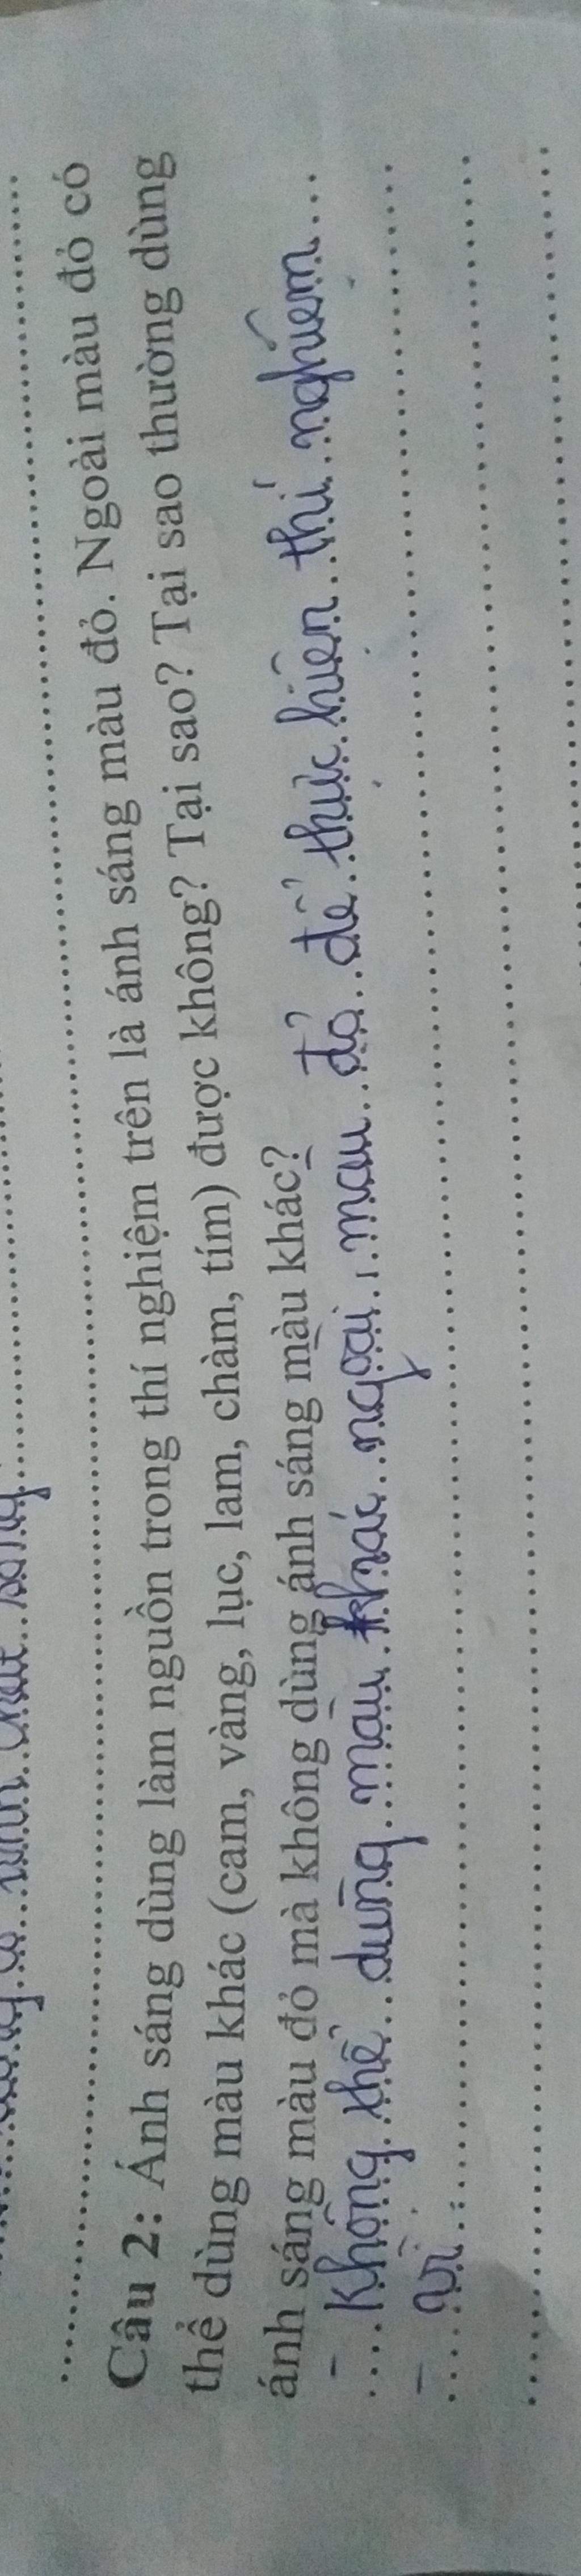 Câu 2: Ánh sáng dùng làm nguồn trong thí nghiệm trên là ánh sáng màu đỏ. Ngoài màu đỏ có
thể dùng màu khác (cam, vàng, lục, lam, chàm, tím) được không? Tại sao? Tại sao thường dùng
ánh sáng màu đỏ mà không dùng ánh sáng màu khác?
- Không thể dùng màu khác ngoài màu đỏ để thực hiện thí nghiệm
- Vì